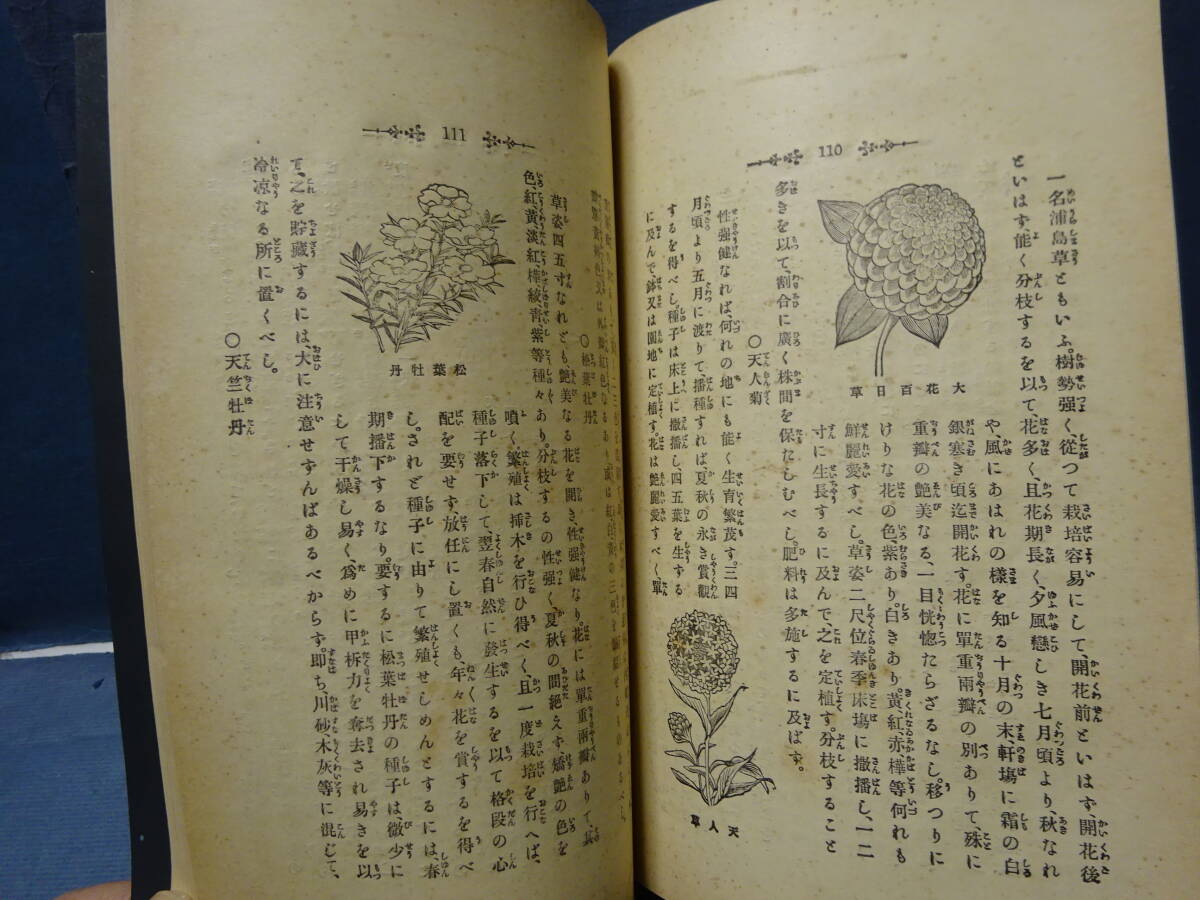 110
一名浦島草ともいふ。樹勢强く、從つて栽培容易にして、開花前といはず、開花後
といはず、能く分枝するを以て、花多く、且花期長く、夕風戀しき七月頃より、秋なれ
や風にあはれの樣を知る十月の末軒塲に霜の白
銀寒き頃迄開花す。花に單重兩瓣の別ありて、殊に
重瓣の艶美なる、一目恍惚たらざるなし。移つりに
けりな花の色、紫あり。白きあり。黃、紅、赤樺等何れも
鮮麗愛すべし。草姿二尺位春季床塲に撒播し、一二
寸に生長するに及んで、之を定植す。分枝すること
多きを以て、割合に廣く株間を保たしむべし。肥料は多施するに及ばす。
大花百日草
〇天人菊
性强健なれば、何れの地にも能く生育繁茂す。三四
月頃より五月に渡りて、播種すれば、夏秋の永き賞觀
するを得べし。種子は床上に撒播し、四五葉を生する
に及んで、鉢又は園地に定植す。花は艶麗愛すべく單
天人草
111
〇松葉牡丹
草姿四五寸なれども艶美なる花を開き性强健なり。花には單重兩瓣ありて、其
色、紅、黃、淡紅樺絞、靑、紫等種々あり。分枝するの性强く、夏秋の間絕えず、嬌艶の色を
噴く繁殖は挿木を行ひ得べく、且一度栽培を行へば、
種子落下して、翌春自然に發生するを以て格段の心
配を要せず、放任にし置くも年々花を賞するを得べ
し。されど種子に由りて繁殖せしめんとするには、春
期播下するなり。要するに松葉牡丹の種子は、微少に
して干燥し易く、爲めに甲柝力を奪去され易きを以
て、之を貯藏するには、大に注意せずんばあるべからず。卽ち、川砂、木灰等に混じて、
冷凉なる所に置くべし。
松葉牡丹
〇天竺牡丹